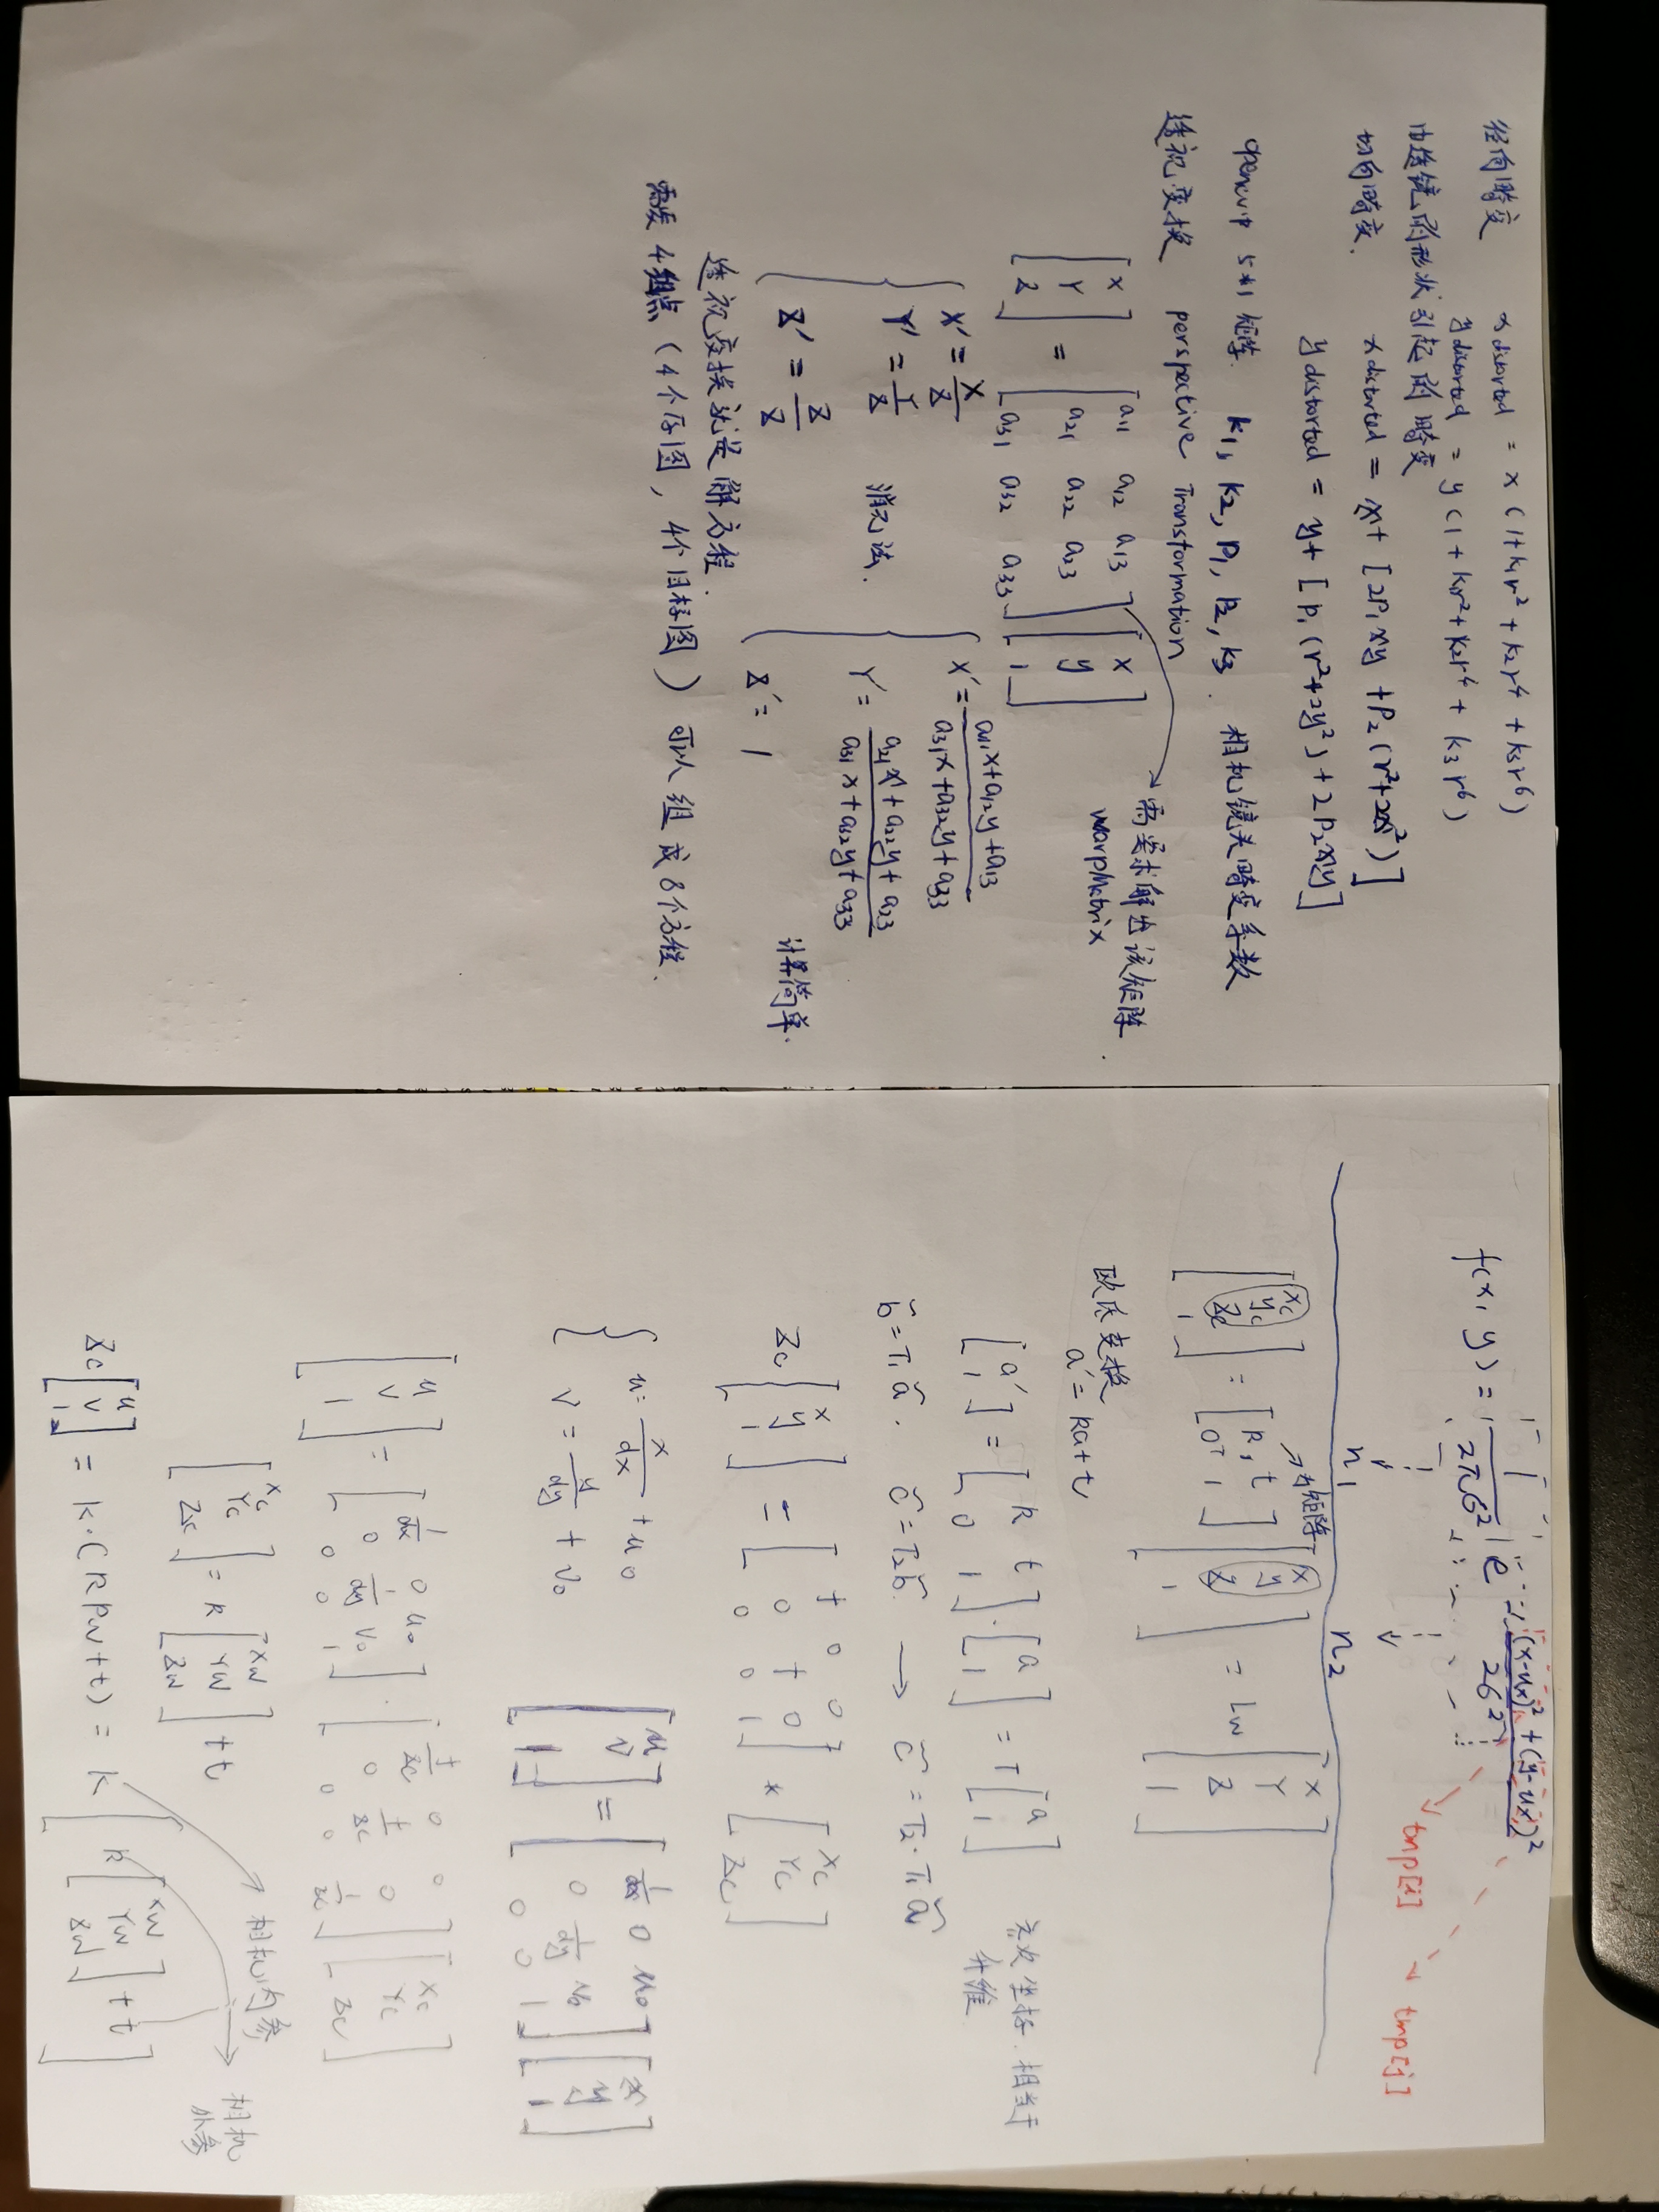 径向畸变 x distorted = x (1+k₁r² + k₂r⁴ + k₃r⁶)
y distorted = y (1 + k₁r² + k₂r⁴ + k₃r⁶)
由透镜的形状引起的畸变
切向畸变. x distorted = x + [2P₁xy + P₂(r²+2x²)]
y distorted = y + [P₁(r²+2y²) + 2P₂xy]
5*1矩阵. k₁, k₂, P₁, P₂, k₃. 相机镜头畸变系数
透视变换 perspective Transformation
[X Y Z] = [a₁₁ a₁₂ a₁₃ a₂₁ a₂₂ a₂₃ a₃₁ a₃₂ a₃₃] [x y 1]
需要求解出该矩阵.
warpMatrix
X' = X/Z
Y' = Y/Z 消元法.
Z' = Z/Z
X' = a₁₁x+a₁₂y+a₁₃ / a₃₁x+a₃₂y+a₃₃
Y' = a₂₁x+a₂₂y+a₂₃ / a₃₁x+a₃₂y+a₃₃
Z' = 1 计算简单.
透视变换就是解方程.
需要4组点(4个原图, 4个目标图) 可以组成8个方程.
f(x, y) = 1/2πσ² e -(x-ux)²+(y-ux)² / 2σ²
tmp[i] tmp[j]
n₁ n₂
[xc yc zc 1] = [R, t 0ᵀ 1] [x y z 1] = Lw [X Y Z 1]
欧氏变换
a' = Ra+t
[a' 1] = [R t 0 1]·[a 1] = T[a 1]
齐次坐标. 相当于
升维
b̃ = T₁ã. c̃ = T₂b̃. → c̃ = T₂·T₁ã
Zc [x y 1] = [f 0 0 0 f 0 0 0 1] * [Xc Yc Zc]
u = x/dx + u₀
v = y/dy + v₀
[u v 1] = [1/dx 0 u₀ 0 1/dy v₀ 0 0 1] [x y 1]
[u v 1] = [1/dx 0 u₀ 0 1/dy v₀ 0 0 1] · [f/Zc 0 0 0 f/Zc 0 0 0 1/Zc] [Xc Yc Zc]
[Xc Yc Zc] = R [Xw Yw Zw] + t
Zc [u v 1] = K·(RPw+t) = K [R [Xw Yw Zw] + t]
相机内参
相机
外参